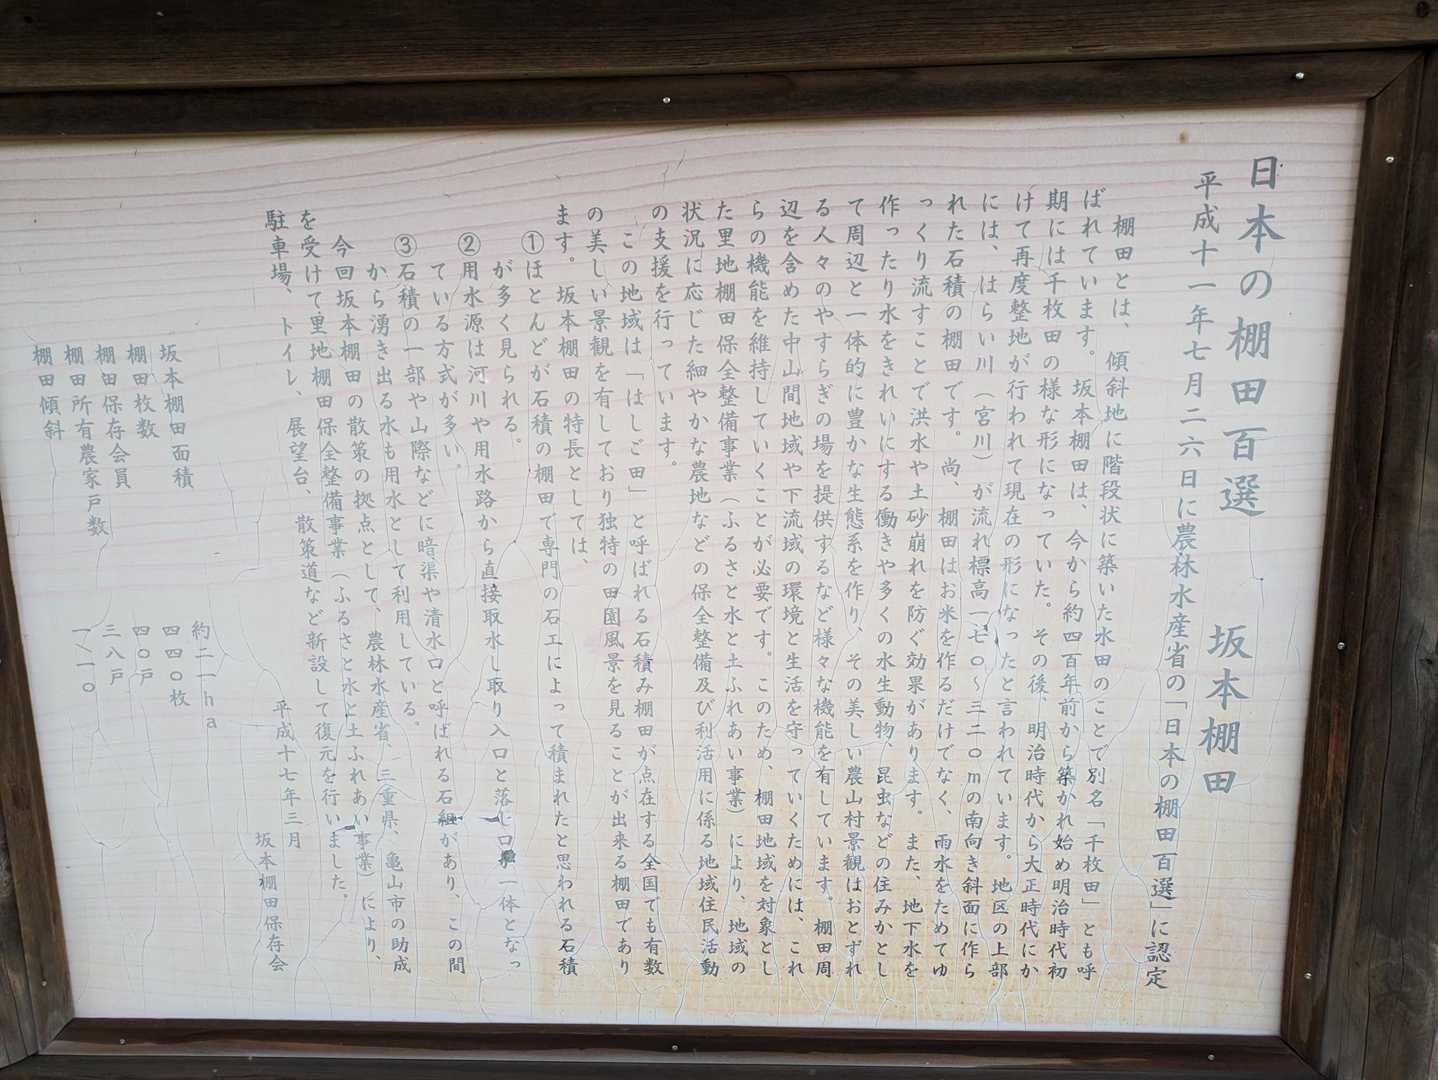 日本の棚田百選　坂本棚田
平成十一年七月二六日に農林水産省の「日本の棚田百選」に認定
棚田とは、傾斜地に階段状に築いた水田のことで別名「千枚田」とも呼
ばれています。坂本棚田は、今から約四百年前から築かれ始め明治時代初
期には千枚田の様な形になっていた。その後、明治時代から大正時代にか
けて再度整地が行われて現在の形になったと言われています。地区の上部
には、はらい川（宮川）が流れ標高一七〇～三二〇ｍの南向き斜面に作ら
れた石積の棚田です。尚、棚田はお米を作るだけでなく、雨水をためてゆ
っくり流すことで洪水や土砂崩れを防ぐ効果があります。また、地下水を
作ったり水をきれいにする働きや多くの水生動物、昆虫などの住みかとし
て周辺と一体的に豊かな生態系を作り、その美しい農山村景観はおとずれ
る人々のやすらぎの場を提供するなど様々な機能を有しています。棚田周
辺を含めた中山間地域や下流域の環境と生活を守っていくためには、これ
らの機能を維持していくことが必要です。このため、棚田地域を対象とし
た里地棚田保全整備事業（ふるさと水と土ふれあい事業）により、地域の
状況に応じた細やかな農地などの保全整備及び利活用に係る地域住民活動
の支援を行っています。
この地域は「はしご田」と呼ばれる石積み棚田が点在する全国でも有数
の美しい景観を有しており独特の田園風景を見ることが出来る棚田であり
ます。坂本棚田の特長としては、
①ほとんどが石積の棚田で専門の石工によって積まれたと思われる石積
が多く見られる。
②用水源は河川や用水路から直接取水し取り入口と落し口が一体となっ
ている方式が多い。
③石積の一部や山際などに暗渠や清水口と呼ばれる石組があり、この間
から湧き出る水も用水として利用している。
今回坂本棚田の散策の拠点として、農林水産省、三重県、亀山市の助成
を受けて里地棚田保全整備事業（ふるさと水と土ふれあい事業）により、
駐車場、トイレ、展望台、散策道など新設して復元を行いました。
平成十七年三月
坂本棚田保存会
坂本棚田面積　約二一ｈａ
棚田枚数　四四〇枚
棚田保存会員　四〇戸
棚田所有農家戸数　三八戸
棚田傾斜　一／一〇